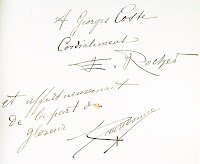 A Georges Coste
Cordialement
E. Rochet
et affectueusement
de la part de